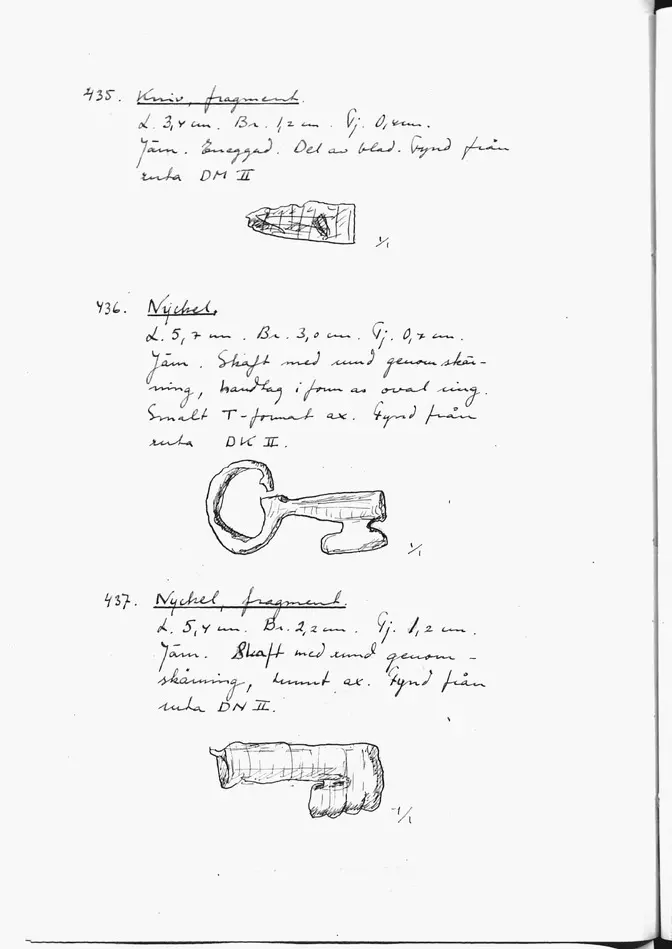 435. Kniv, fragment.
L. 3,4 cm. Br. 1,2 cm. Tj. 0,4 cm.
Järn. Eneggad. Del av blad. Fynd från
ruta DM II
1/1
436. Nyckel.
L. 5,7 cm. Br. 3,0 cm. Tj. 0,7 cm.
Järn. Skaft med rund genomskär-
ning, handtag i form av oval ring.
Smalt T-format ax. Fynd från
ruta DK II.
1/1
437. Nyckel, fragment.
L. 5,4 cm. Br. 2,2 cm. Tj. 1,2 cm.
Järn. Skaft med rund genom-
skärning, tunnt ax. Fynd från
ruta DN II.
1/1